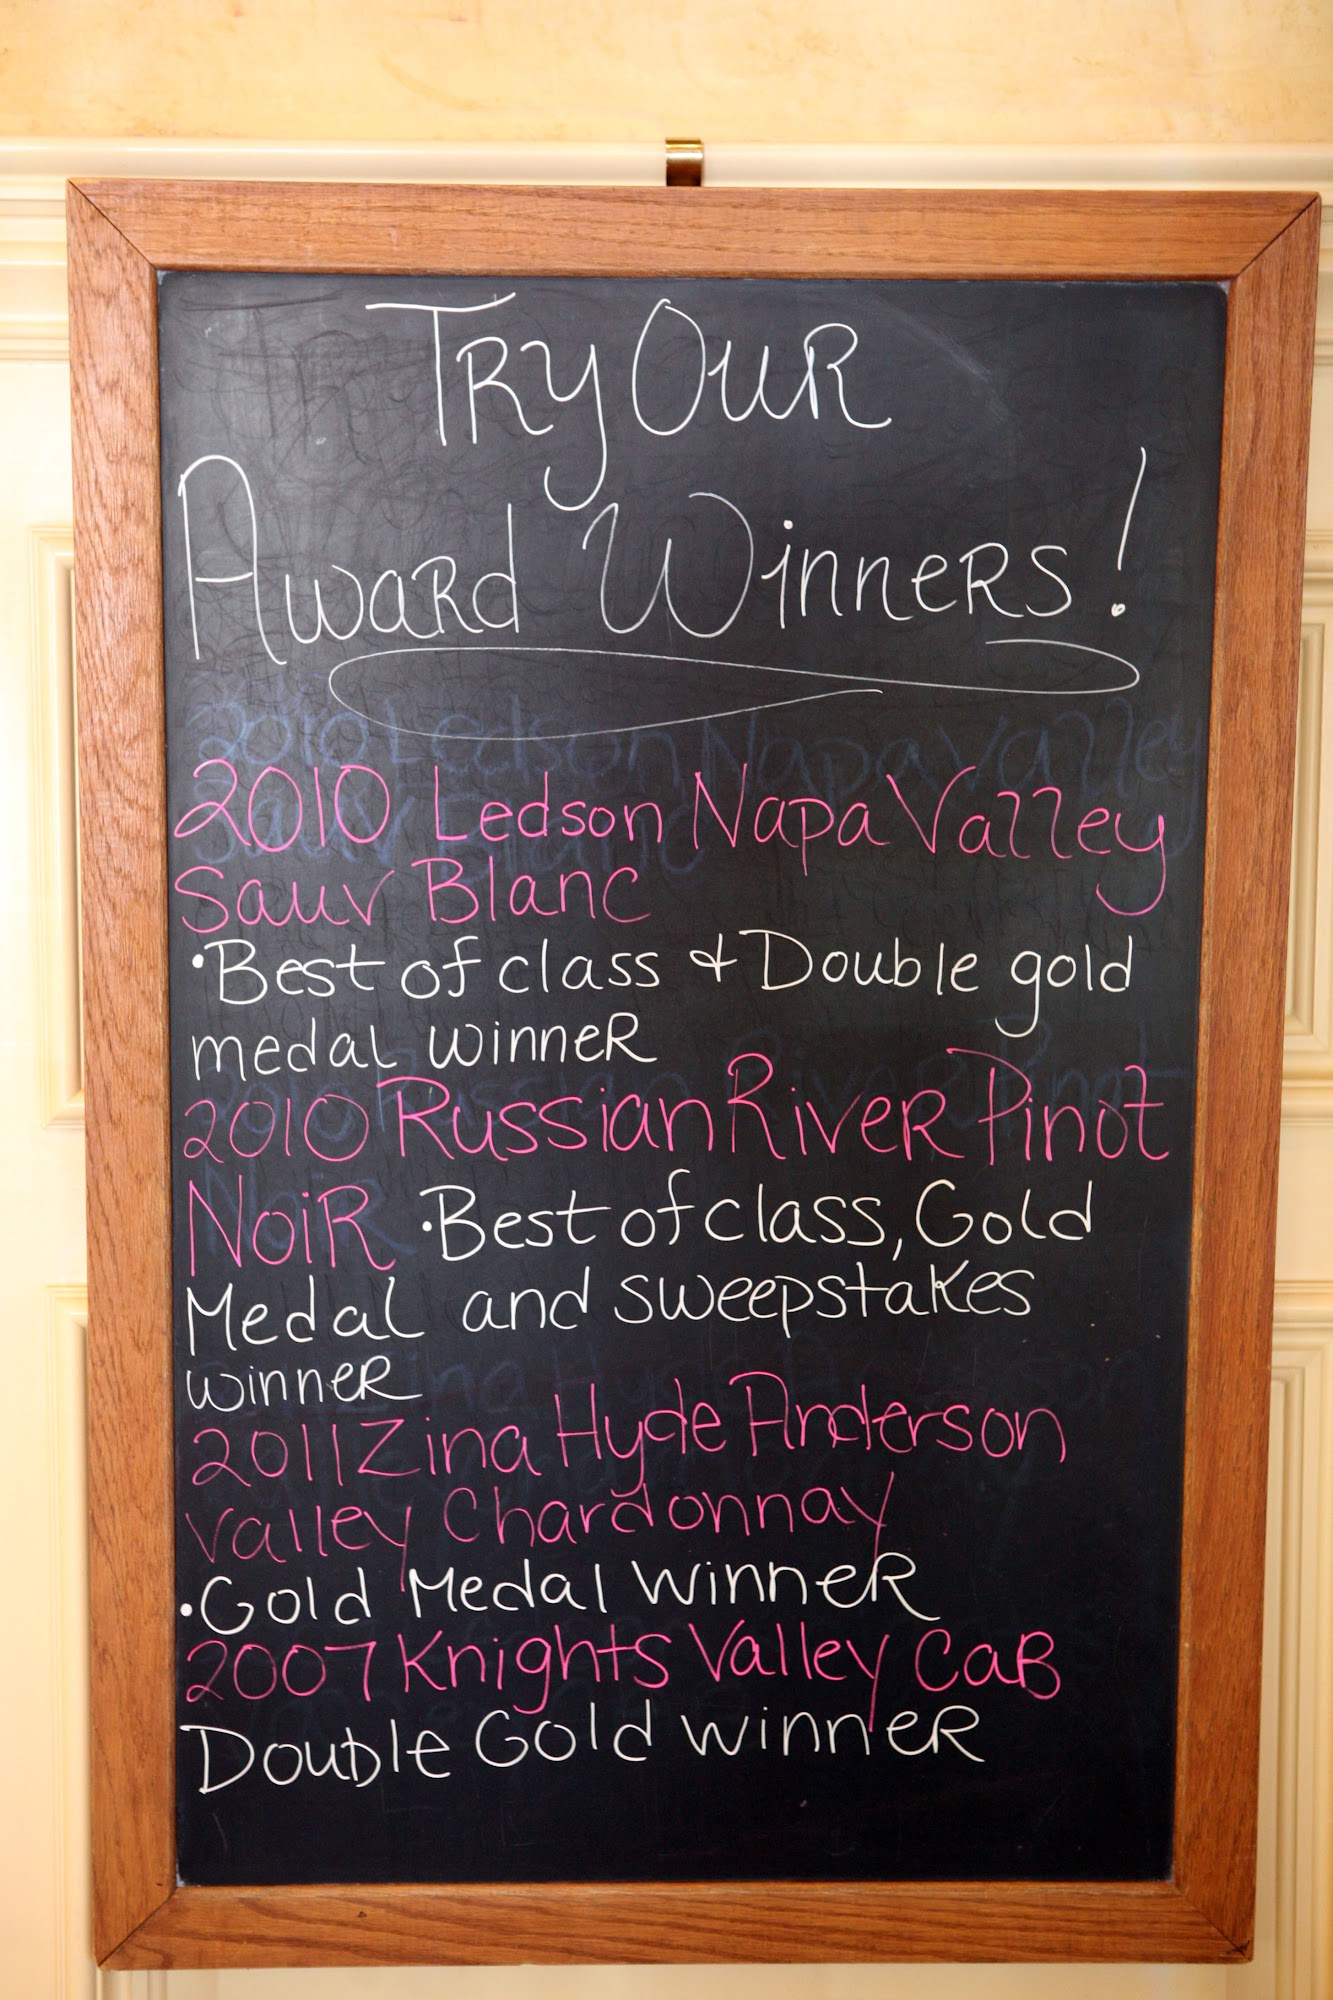 Try Our
Award Winners!
2010 Ledson Napa Valley
Sauv Blanc
•Best of class & Double gold
medal winner
2010 Russian River Pinot
Noir •Best of class, Gold
Medal and sweepstakes
winner
2011 Zina Hyde Anderson
Valley Chardonnay
•Gold Medal Winner
2007 Knights Valley Cab
Double Gold Winner